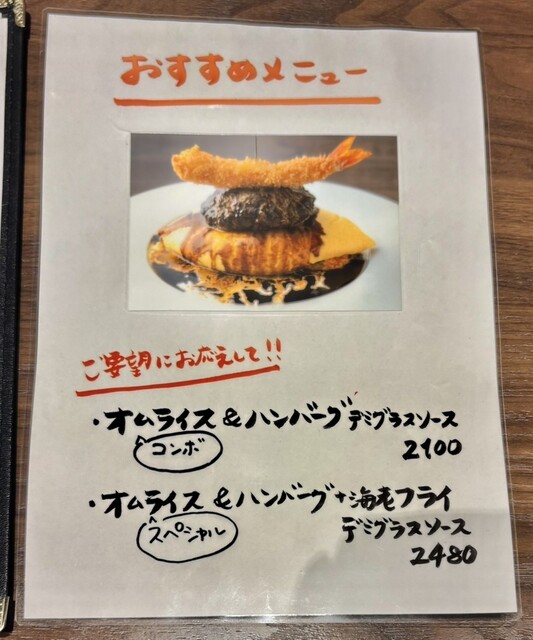 おすすめメニュー
ご要望にお応えして!!
・オムライス&ハンバーグデミグラスソース
コンボ
2100
・オムライス&ハンバーグ+海老フライ
スペシャル
デミグラスソース
2480